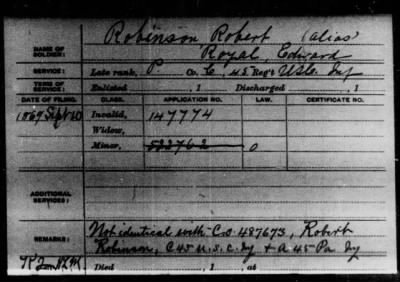 Robinson Robert (alias)
NAME OF SOLDIER: Royal, Edward
SERVICE: Late rank, P. Co. C, 45 Reg't U.S.C. Inf
TERM OF SERVICE: Enlisted , 1 Discharged , 1
DATE OF FILING. CLASS. APPLICATION NO. LAW. CERTIFICATE NO.
1869 Sept 10 Invalid, 147774
Widow,
Minor, 522762 0
ADDITIONAL SERVICES:
Not identical with C.O. 487675, Robert
REMARKS: Robinson, C 45 U.S.C. Inf + A 45 Pa Inf
Died , 1 , at